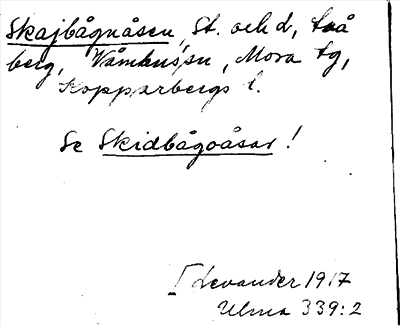 Skajbågnåsen, St. och L., två
berg, Våmhus sn, Mora tg,
Kopparbergs l.
Se Skidbågoåsar!
Levander 1917
Ulma 339:2